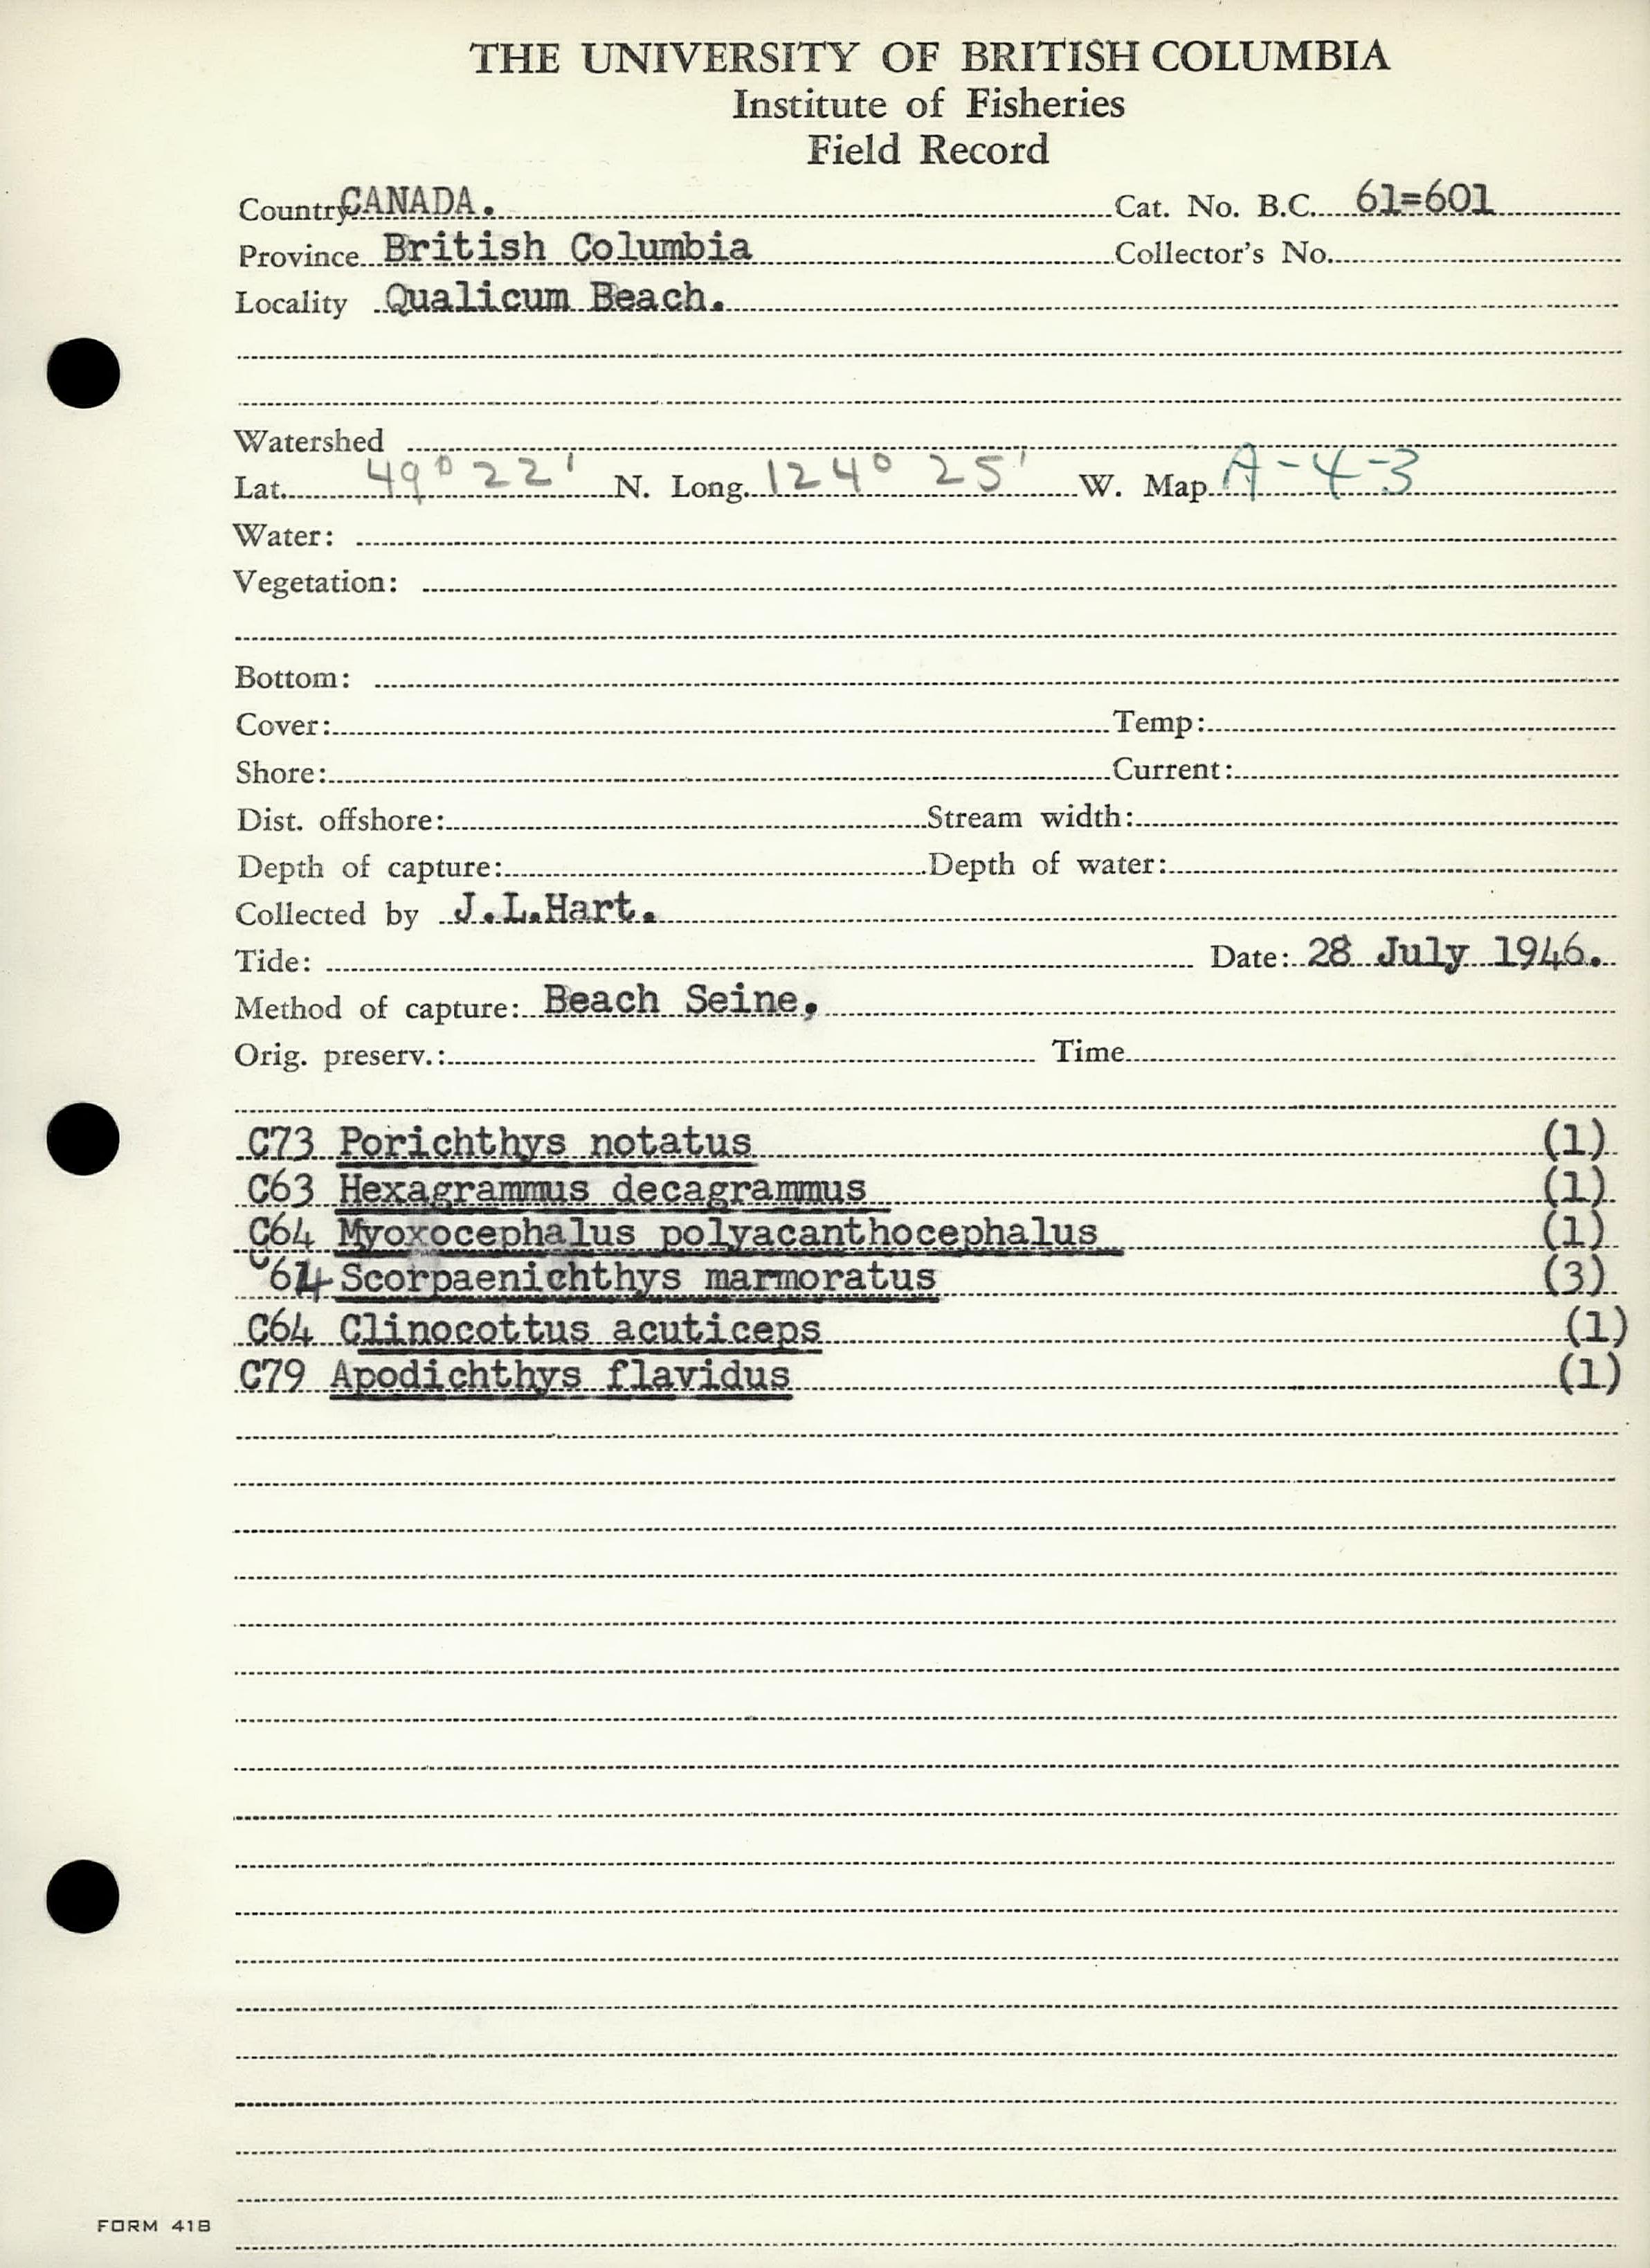 THE UNIVERSITY OF BRITISH COLUMBIA
Institute of Fisheries
Field Record
Country CANADA. Cat. No. B.C. 61=601
Province British Columbia Collector's No.
Locality Qualicum Beach.
Watershed
Lat. 49° 22' N. Long. 124° 25' W. Map A-4-3
Water:
Vegetation:
Bottom:
Cover: Temp:
Shore: Current:
Dist. offshore: Stream width:
Depth of capture: Depth of water:
Collected by J.L.Hart.
Tide: Date: 28 July 1946.
Method of capture: Beach Seine,
Orig. preserv.: Time
C73 Porichthys notatus (1)
C63 Hexagrammus decagrammus (1)
C64 Myoxocephalus polyacanthocephalus (1)
C64 Scorpaenichthys marmoratus (3)
C64 Clinocottus acuticeps (1)
C79 Apodichthys flavidus (1)
FORM 41B